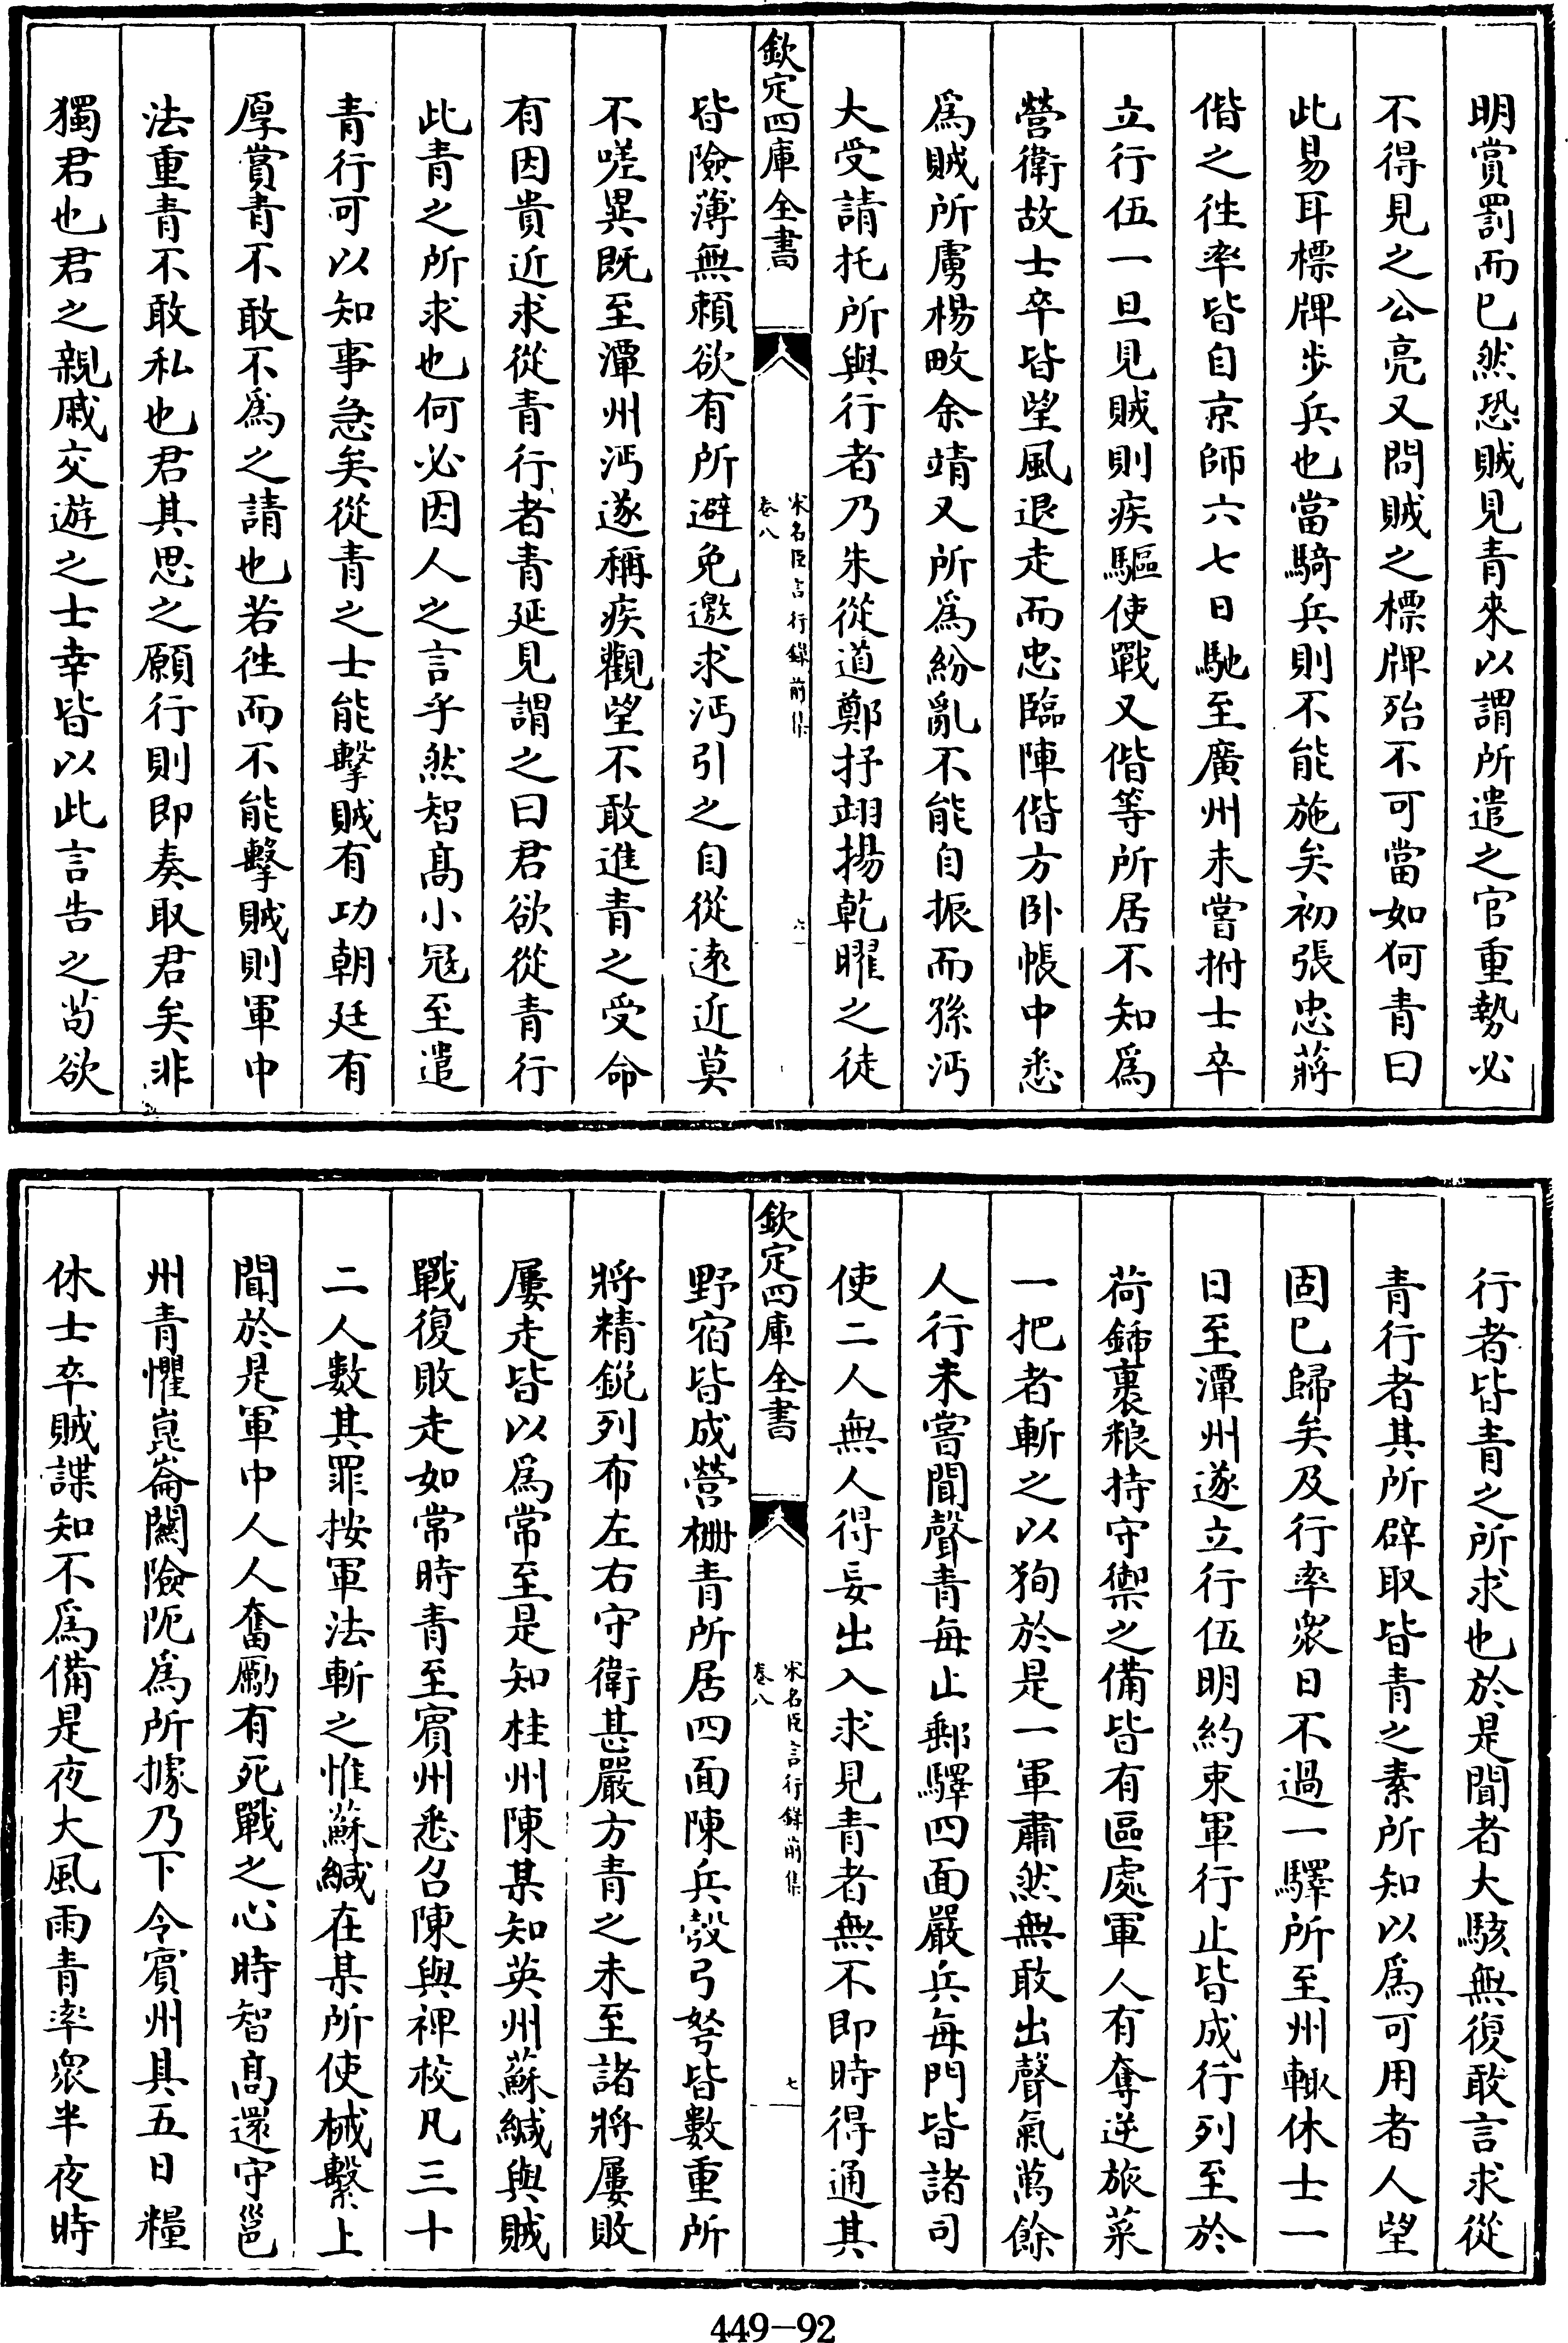 明賞罰而已然恐賊見青來以謂所遣之官重勢必
不得見之公亮又問賊之標牌殆不可當如何青曰
此易耳標牌步兵也當騎兵則不能施矣初張忠蔣
偕之徃率皆自京師六七日馳至廣州未嘗拊士卒
立行伍一旦見賊則疾驅使戰又偕等所居不知為
營衛故士卒皆望風退走而忠臨陣偕方卧帳中悉
為賊所虜楊畋余靖又所為紛亂不能自振而孫沔
大受請托所與行者乃朱從道鄭抒翃揚乾曜之徒
欽定四庫全書
宋名臣言行錄前集
卷八
六
皆險薄無頼欲有所避免邀求沔引之自從逺近莫
不嗟異既至潭州沔遂稱疾觀望不敢進青之受命
有因貴近求從青行者青延見謂之曰君欲從青行
此青之所求也何必因人之言乎然智髙小冦至遣
青行可以知事急矣從青之士能擊賊有功朝廷有
厚賞青不敢不為之請也若徃而不能擊賊則軍中
法重青不敢私也君其思之願行則即奏取君矣非
獨君也君之親戚交遊之士幸皆以此言告之苟欲
行者皆青之所求也於是聞者大駭無復敢言求從
青行者其所辟取皆青之素所知以為可用者人望
固已歸矣及行率衆日不過一驛所至州輙休士一
日至潭州遂立行伍明約束軍行止皆成行列至於
荷鍤裹粮持守禦之備皆有區處軍人有奪逆旅菜
一把者斬之以狥於是一軍肅然無敢出聲氣萬餘
人行未嘗聞聲青每止郵驛四面嚴兵每門皆諸司
使二人無人得妄出入求見青者無不即時得通其
欽定四庫全書
宋名臣言行錄前集
卷八
七
野宿皆成營柵青所居四面陳兵彀弓弩皆數重所
將精鋭列布左右守衛甚嚴方青之未至諸將屢敗
屢走皆以為常至是知桂州陳某知英州蘇緘與賊
戰復敗走如常時青至賔州悉召陳與裨校凡三十
二人數其罪按軍法斬之惟蘇緘在某所使械繫上
聞於是軍中人人奮勵有死戰之心時智髙還守邕
州青懼崑崙關險阨為所據乃下令賔州具五日糧
休士卒賊諜知不為備是夜大風雨青率衆半夜時
449-92